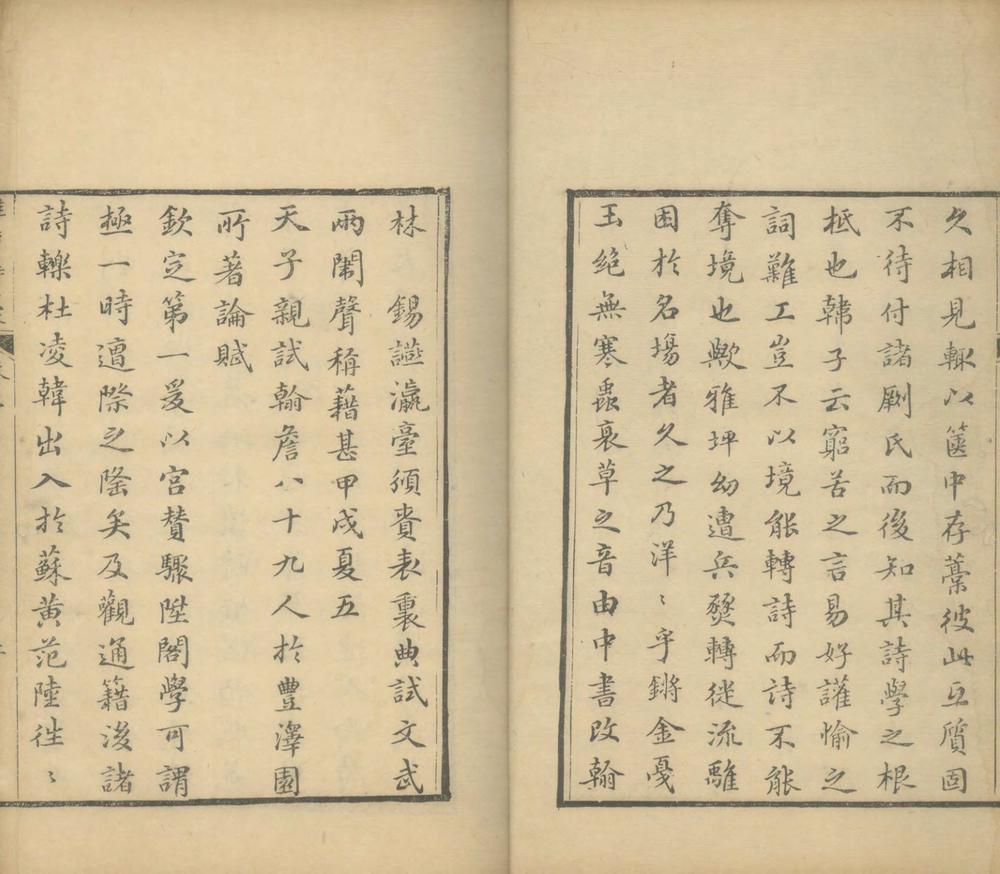 久相見輙以篋中存藁彼此互質固
不待付諸劂氏而後知其詩學之根
柢也韓子云窮苦之言易好讙愉之
詞難工豈不以境能轉詩而詩不能
奪境也歟雅坪幼遭兵燹轉徙流離
困於名場者久之乃洋〻乎鏘金戞
玉絶無寒蟲衰草之音由中書改翰
林錫讌瀛臺頒賚表裏典試文武
兩闈聲稱藉甚甲戌夏五
天子親試翰詹八十九人於豐澤園
所著論賦
欽定第一爰以宮贊驟陞閣學可謂
極一時遭際之隆矣及觀通籍後諸
詩轢杜凌韓出入於蘇黄范陸徃〻